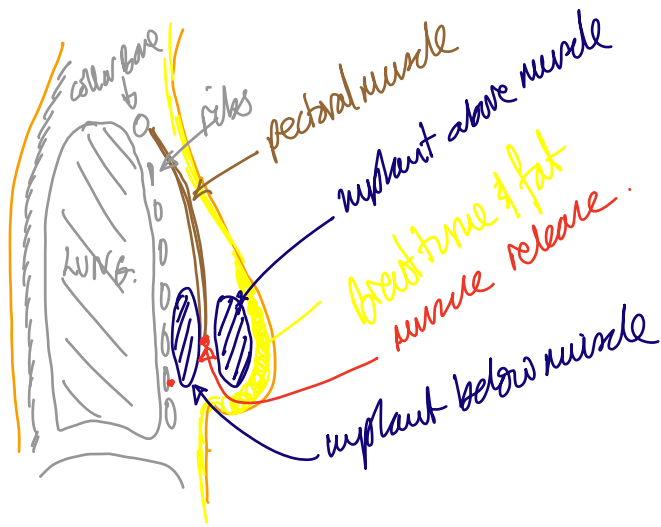 collar bone
ribs
pectoral muscle
implant above muscle
LUNG.
Breast tissue & fat
muscle release.
implant below muscle